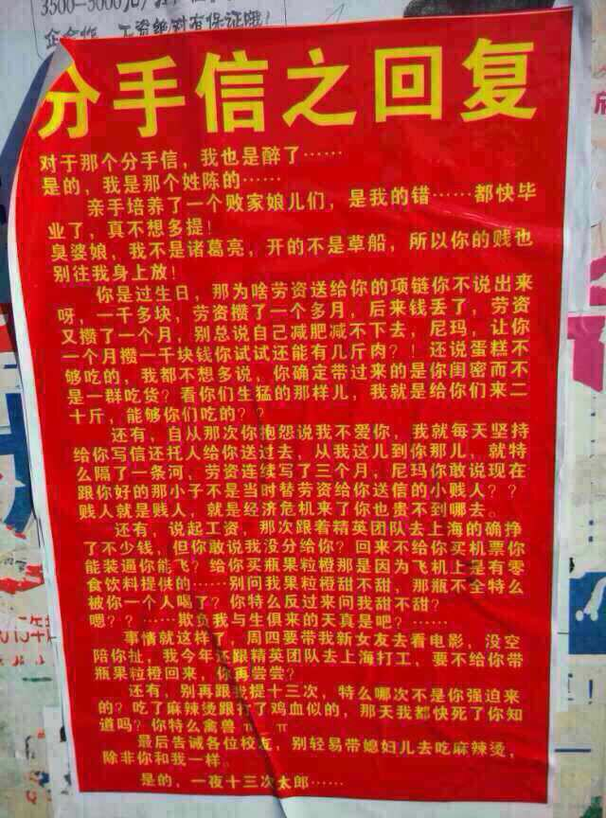 3500-5000元/
分手信之回复
对于那个分手信，我也是醉了……
是的，我是那个姓陈的……
亲手培养了一个败家娘儿们，是我的错……都快毕
业了，真不想多提！
臭婆娘，我不是诸葛亮，开的不是草船，所以你的贱也
别往我身上放！
你是过生日，那为啥劳资送给你的项链你不说出来
呀，一千多块，劳资攒了一个多月，后来钱丢了，劳资
又攒了一个月，别总说自己减肥减不下去，尼玛，让你
一个月攒一千块钱你试试还能有几斤肉？！还说蛋糕不
够吃的，我都不想多说，你确定带过来的是你闺密而不
是一群吃货？看你们生猛的那样儿，我就是给你们来二
十斤，能够你们吃的？？
还有，自从那次你抱怨说我不爱你，我就每天坚持
给你写信还托人给你送过去，从我这儿到你那儿，就特
么隔了一条河，劳资连续写了三个月，尼玛你敢说现在
跟你好的那小子不是当时替劳资给你送信的小贱人？？
贱人就是贱人，就是经济危机来了你也贵不到哪去。
还有，说起工资，那次跟着精英团队去上海的确挣
了不少钱，但你敢说我没分给你？回来不给你买机票你
能装逼你能飞？给你买瓶果粒橙那是因为飞机上是有零
食饮料提供的……别问我果粒橙甜不甜，那瓶不全特么
被你一个人喝了？你特么反过来问我甜不甜？
嗯？？……欺负我与生俱来的天真是吧？……
事情就这样了，周四要带我新女友去看电影，没空
陪你扯，我今年还跟精英团队去上海打工，要不给你带
瓶果粒橙回来，你再尝尝？
还有，别再跟我提十三次，特么哪次不是你强迫来
的？吃了麻辣烫跟打了鸡血似的，那天我都快死了你知
道吗？你特么禽兽 π__π
最后告诫各位校友，别轻易带媳妇儿去吃麻辣烫，
除非你和我一样。
是的，一夜十三次太郎……